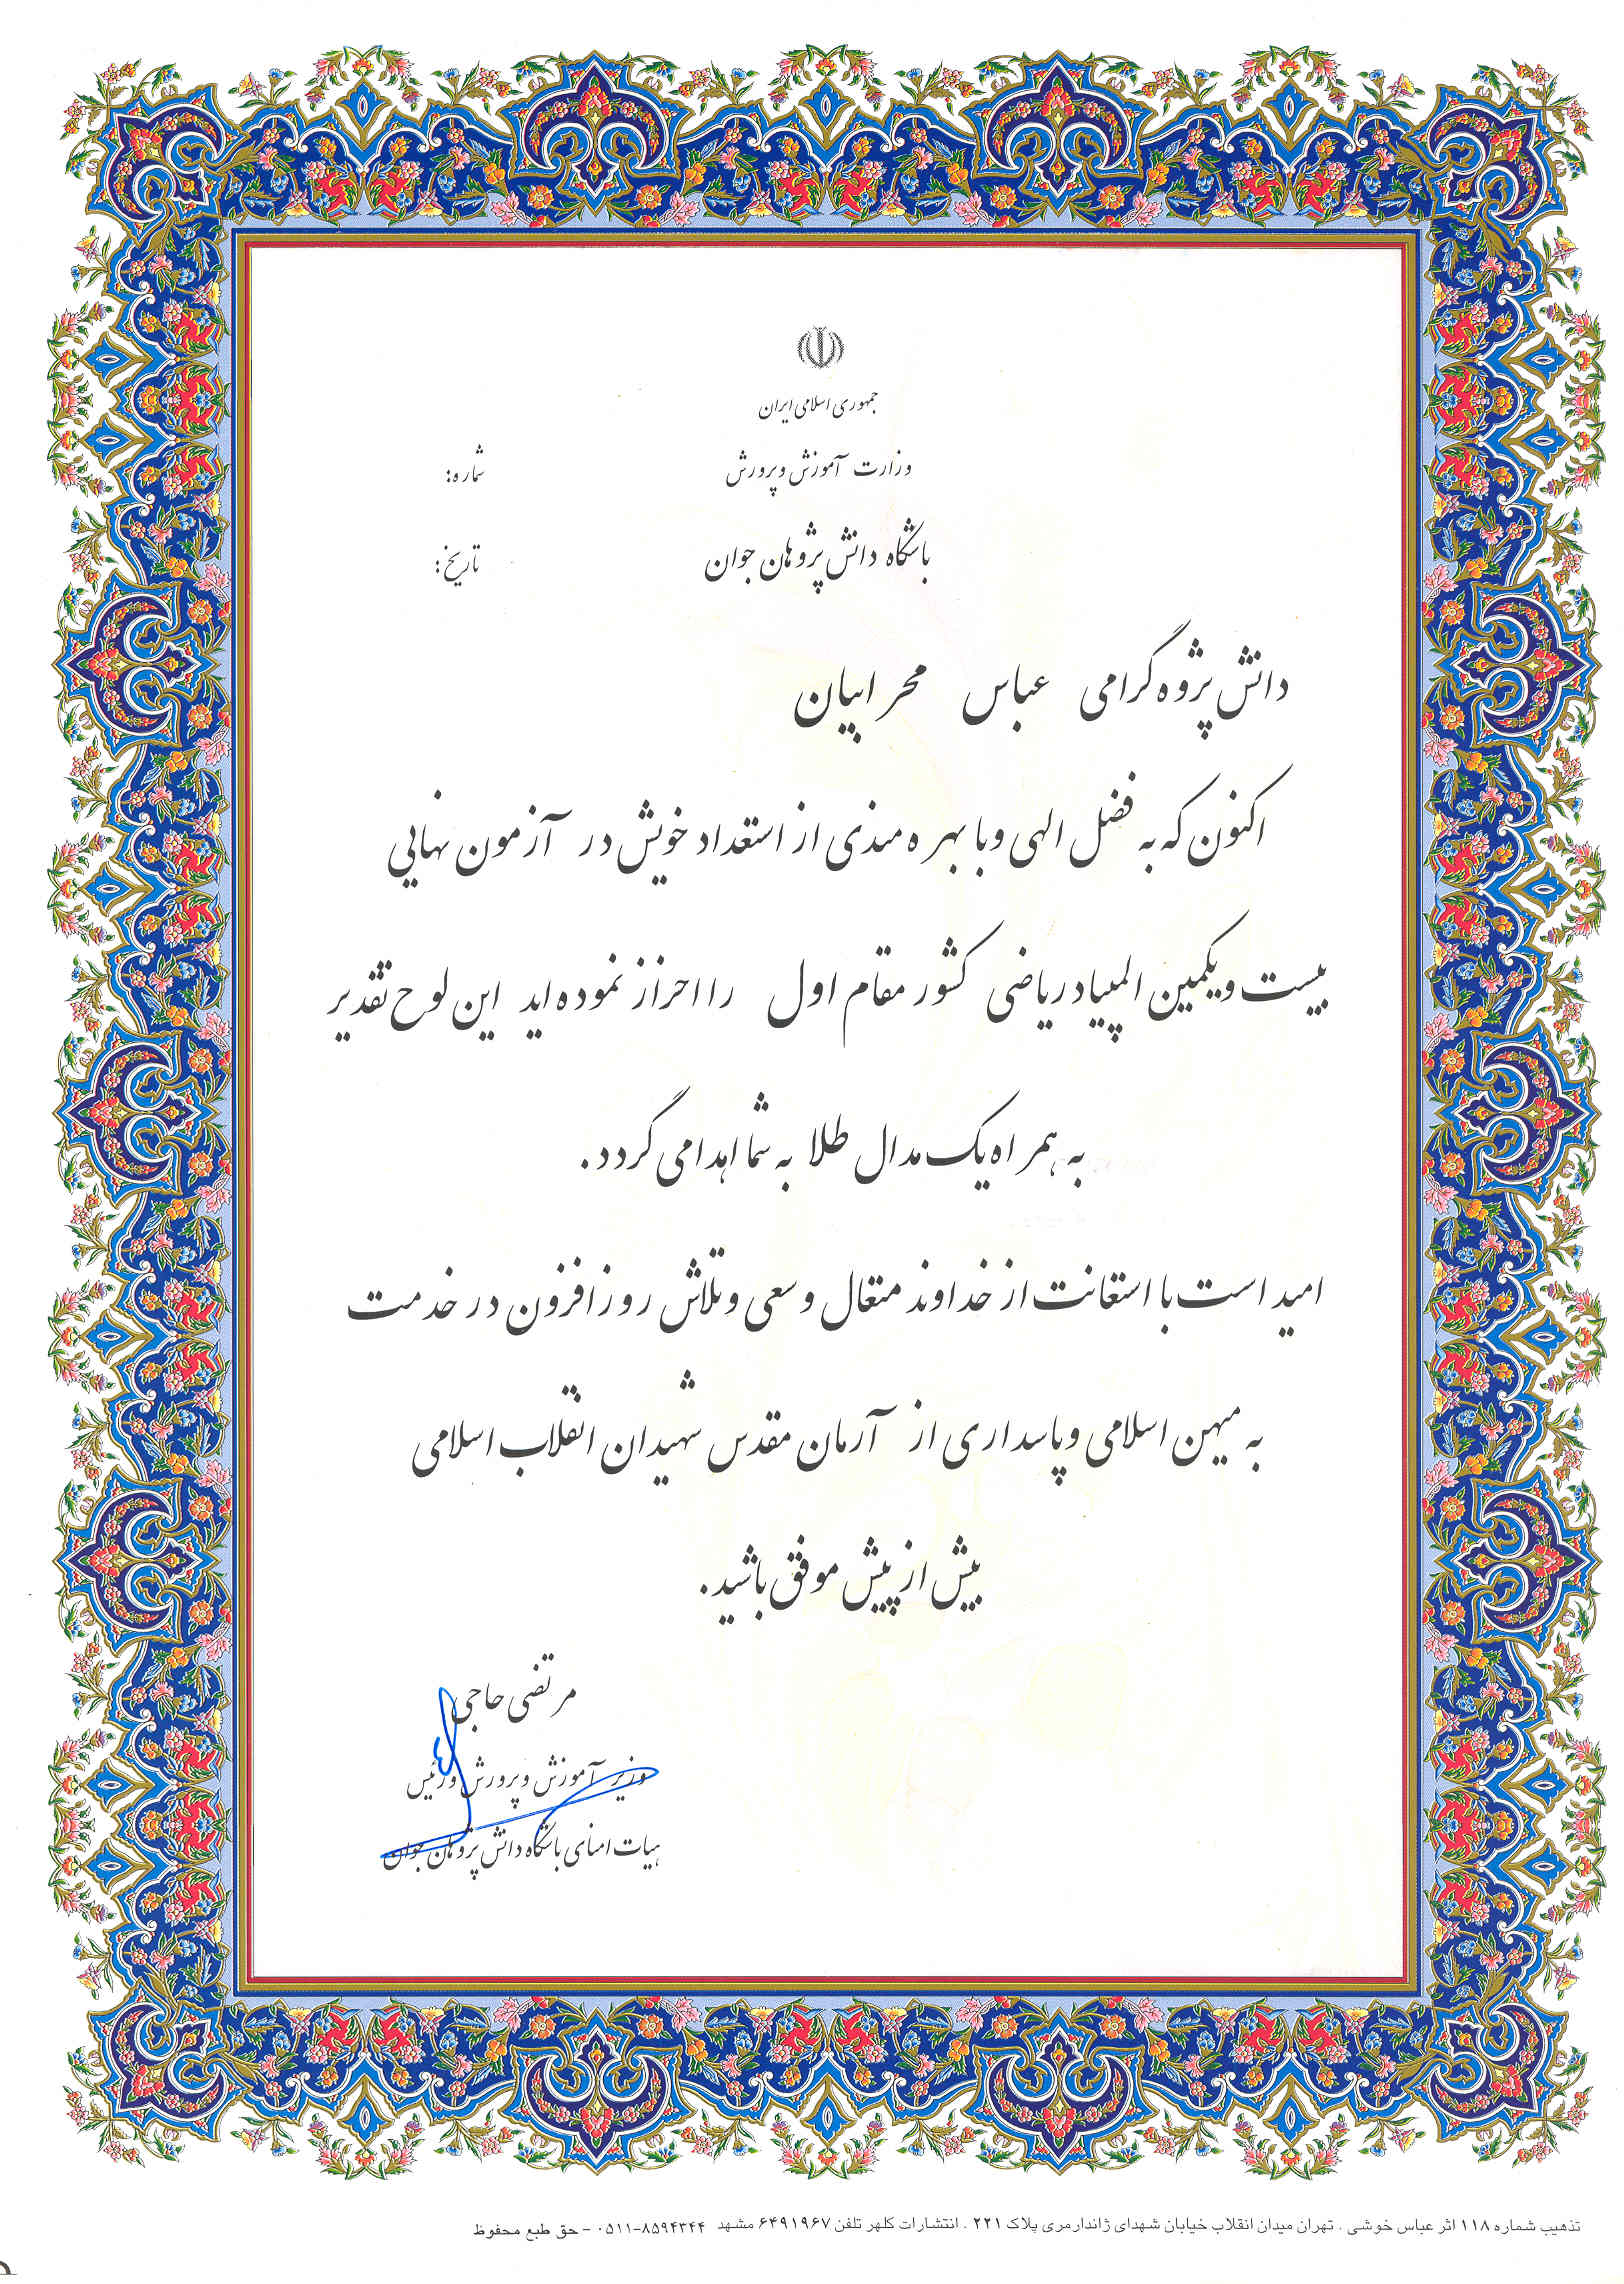 جمهوری اسلامی ایران
وزارت آموزش و پرورش
شماره:
باشگاه دانش پژوهان جوان
تاریخ:
دانش پژوه گرامی عباس محرابیان
اکنون که به فضل الهی و با بهره مندی از استعداد خویش در آزمون نهایی
بیست و یکمین المپیاد ریاضی کشور مقام اول را احراز نموده اید این لوح تقدیر
به همراه یک مدال طلا به شما اهدا می گردد.
امید است با استعانت از خداوند متعال و سعی و تلاش روز افزون در خدمت
به میهن اسلامی و پاسداری از آرمان مقدس شهیدان انقلاب اسلامی
بیش از پیش موفق باشید.
مرتضی حاجی
وزیر آموزش و پرورش و رئیس
هیات امنای باشگاه دانش پژوهان جوان
تذهیب شماره ۱۱۸ اثر عباس خوشی . تهران میدان انقلاب خیابان شهدای ژاندارمری پلاک ۲۲۱ . انتشارات کلهر تلفن ۶۴۹۱۹۶۷ مشهد ۸۵۹۴۳۴۴-۰۵۱۱ - حق طبع محفوظ